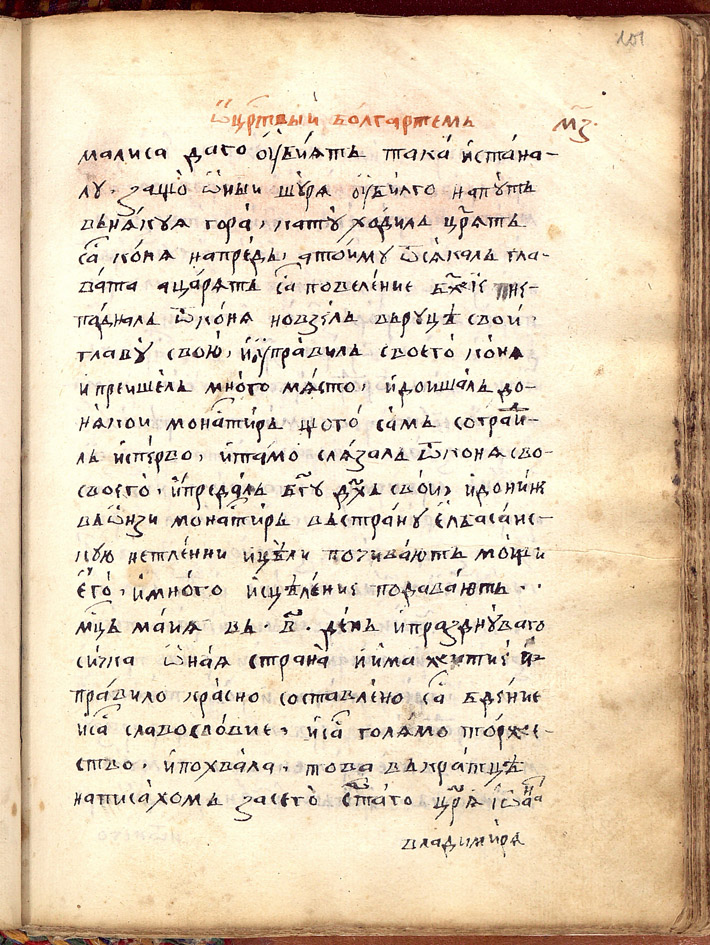 101
ѿ црⷭ҇твый болгаⷬтемъ м҃з·
малиса даго оубіѧтъ така̀ и҆стана-
лу· защо̀ ѻ҆ныи шурѧ оуби́лго напу́тъ
вънѧ́куѧ гора̀, кату̀ хо́дилъ цр҃ѧтъ
са̀ ко́нѧ напредъ, атоиму ѿсѧ́калъ гла-
вата ацарѧтъ са̀ повеле́ние бж҃іе не-
па́дналъ ѿ ко́нѧ новзе́лъ въруцѣ̀ свои·
главу̀ свою̀, и҆ у҆пра́вилъ своего ко́нѧ
и҆ преишелъ мно́го мѧсто, и҆доишалъ до-
нѧкои мона́тиръ щото̀ са́мъ сотраи-
лъ и҆сперво, и҆тамо слѧзалъ ѿ конѧ сво-
своего̀, и҆преда́лъ бг҃у дх҃ъ свои, и҆дониж
въѻ҆нзи мона́тиръ въстрану̀ е҆лбаса́нс-
кую нетле́нни и҆цѣ́ли почива́ютъ мо́щи
е҆го̀, и҆мно́го и҆сцѣле́ние подава́ютъ··
мц҃ъ ма́иѧ въ·к҃в· де́нь и҆празднуваго
си́чка ѻ҆наѧ страна̀ и҆има житиѐ и҆
пра́вило кра́сно соста́влено са̀ бде́ние
и҆са̀ славосло́вие, и҆са̀ голѧ́мо то́рже-
ство, и҆похва́ла, това въкра́тцѣ
написа́хомъ засего̀ ст҃а́го цр҃ѧ і҆ѡа́на
владими́рѧ